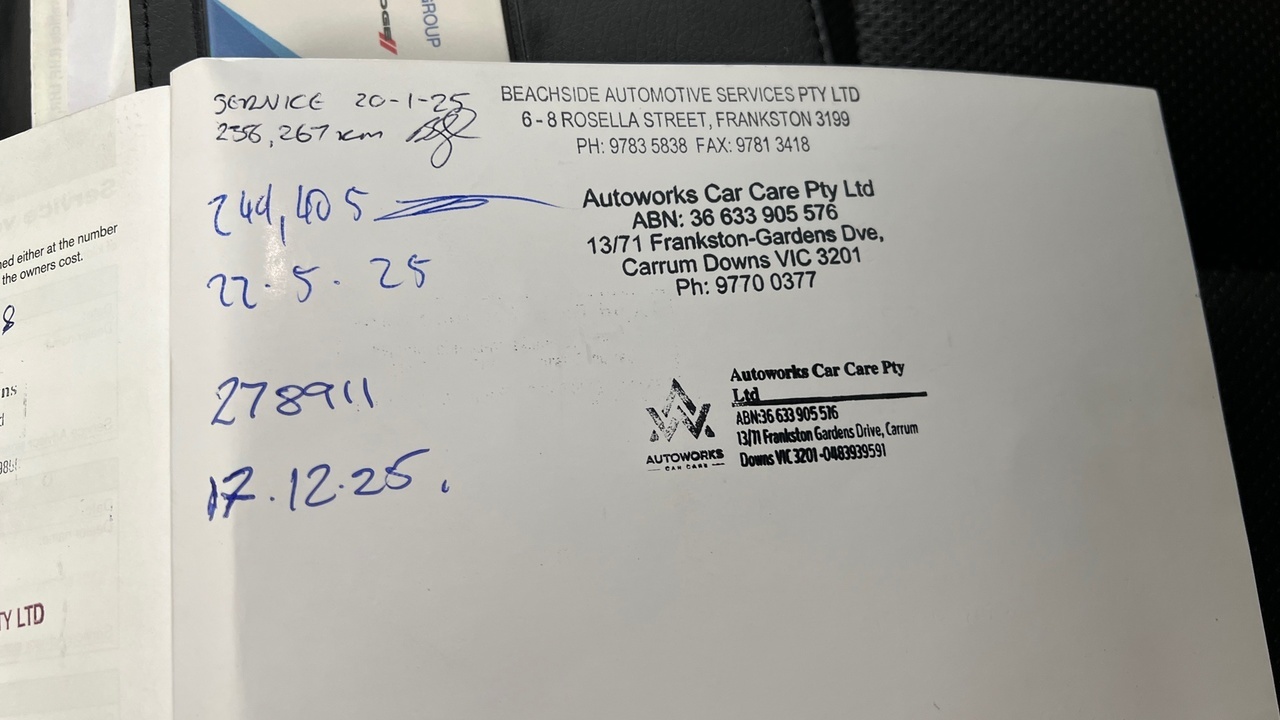 GROUP
SERVICE 20-1-25
238,267 km
BEACHSIDE AUTOMOTIVE SERVICES PTY LTD
6 - 8 ROSELLA STREET, FRANKSTON 3199
PH: 9783 5838 FAX: 9781 3418
244,405
22.5.25
Autoworks Car Care Pty Ltd
ABN: 36 633 905 576
13/71 Frankston-Gardens Dve,
Carrum Downs VIC 3201
Ph: 9770 0377
278911
17.12.25.
AUTOWORKS
CAR CARE
Autoworks Car Care Pty
Ltd
ABN:36 633 905 516
13/71 Frankston Gardens Drive, Carrum
Downs VIC 3201 -0483939591
ned either at the number
the owners cost.
8
ns
TY LTD